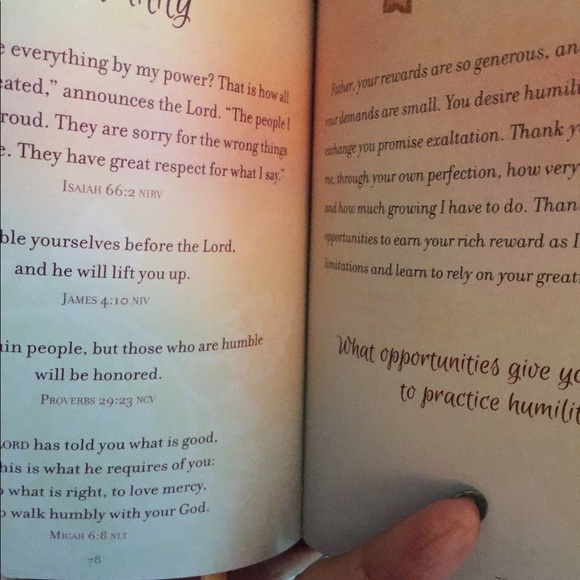 e everything by my power? That is how all
eated,” announces the Lord. “The people I
roud. They are sorry for the wrong things
e. They have great respect for what I say.”
ISAIAH 66:2 NIRV
ble yourselves before the Lord,
and he will lift you up.
JAMES 4:10 NIV
uin people, but those who are humble
will be honored.
PROVERBS 29:23 NCV
LORD has told you what is good,
his is what he requires of you:
o what is right, to love mercy,
o walk humbly with your God.
MICAH 6:8 NLT
78
Father, your rewards are so generous, an
your demands are small. You desire humili
exchange you promise exaltation. Thank y
me, through your own perfection, how very
and how much growing I have to do. Than
opportunities to earn your rich reward as I
limitations and learn to rely on your great
What opportunities give yo
to practice humilit